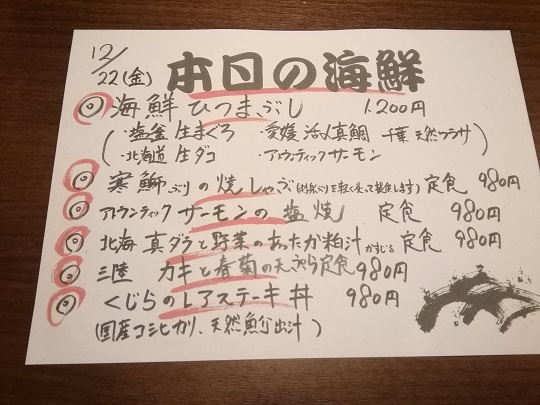 12/22(金) 本日の海鮮
◎ 海鮮 ひつまぶし 1.200円
(・塩釜 生まぐろ ・愛媛 活〆真鯛 千葉 天然ワラサ
・北海道 生ダコ ・アトランティックサーモン)
◎ 寒鰤(ぶり)の焼しゃぶ 定食 980円
◎ アトランティックサーモンの塩焼 定食 980円
◎ 北海 真ダラと野菜のあったか粕汁(かすじる)定食 980円
◎ 三陸 カキと春菊の天ぷら定食 980円
◎ くじらのレアステーキ丼 980円
(国産コシヒカリ、天然魚介出汁)